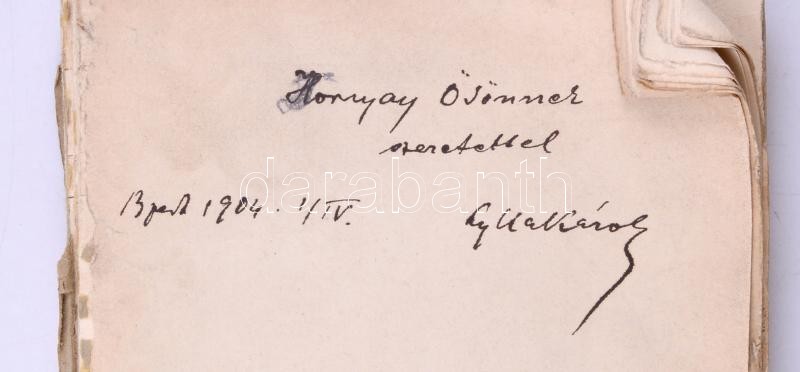 Hornyay Ödönnek
szeretettel
Bpest 1904. 1/IV.
Csylla Károly
darabanth